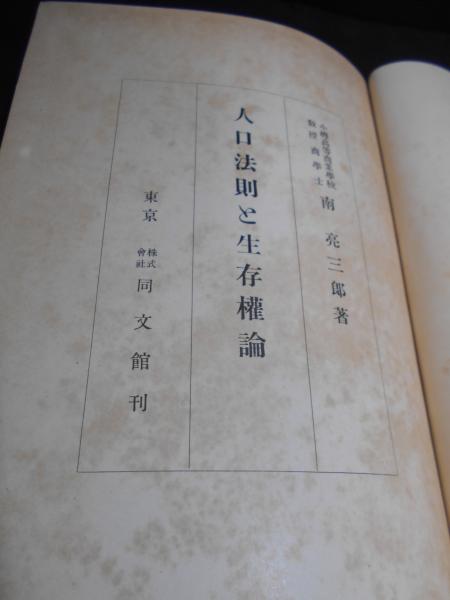 小樽高等商業學校
教授 商學士 南亮三郎著
人口法則と生存權論
東京 株式會社 同文館刊